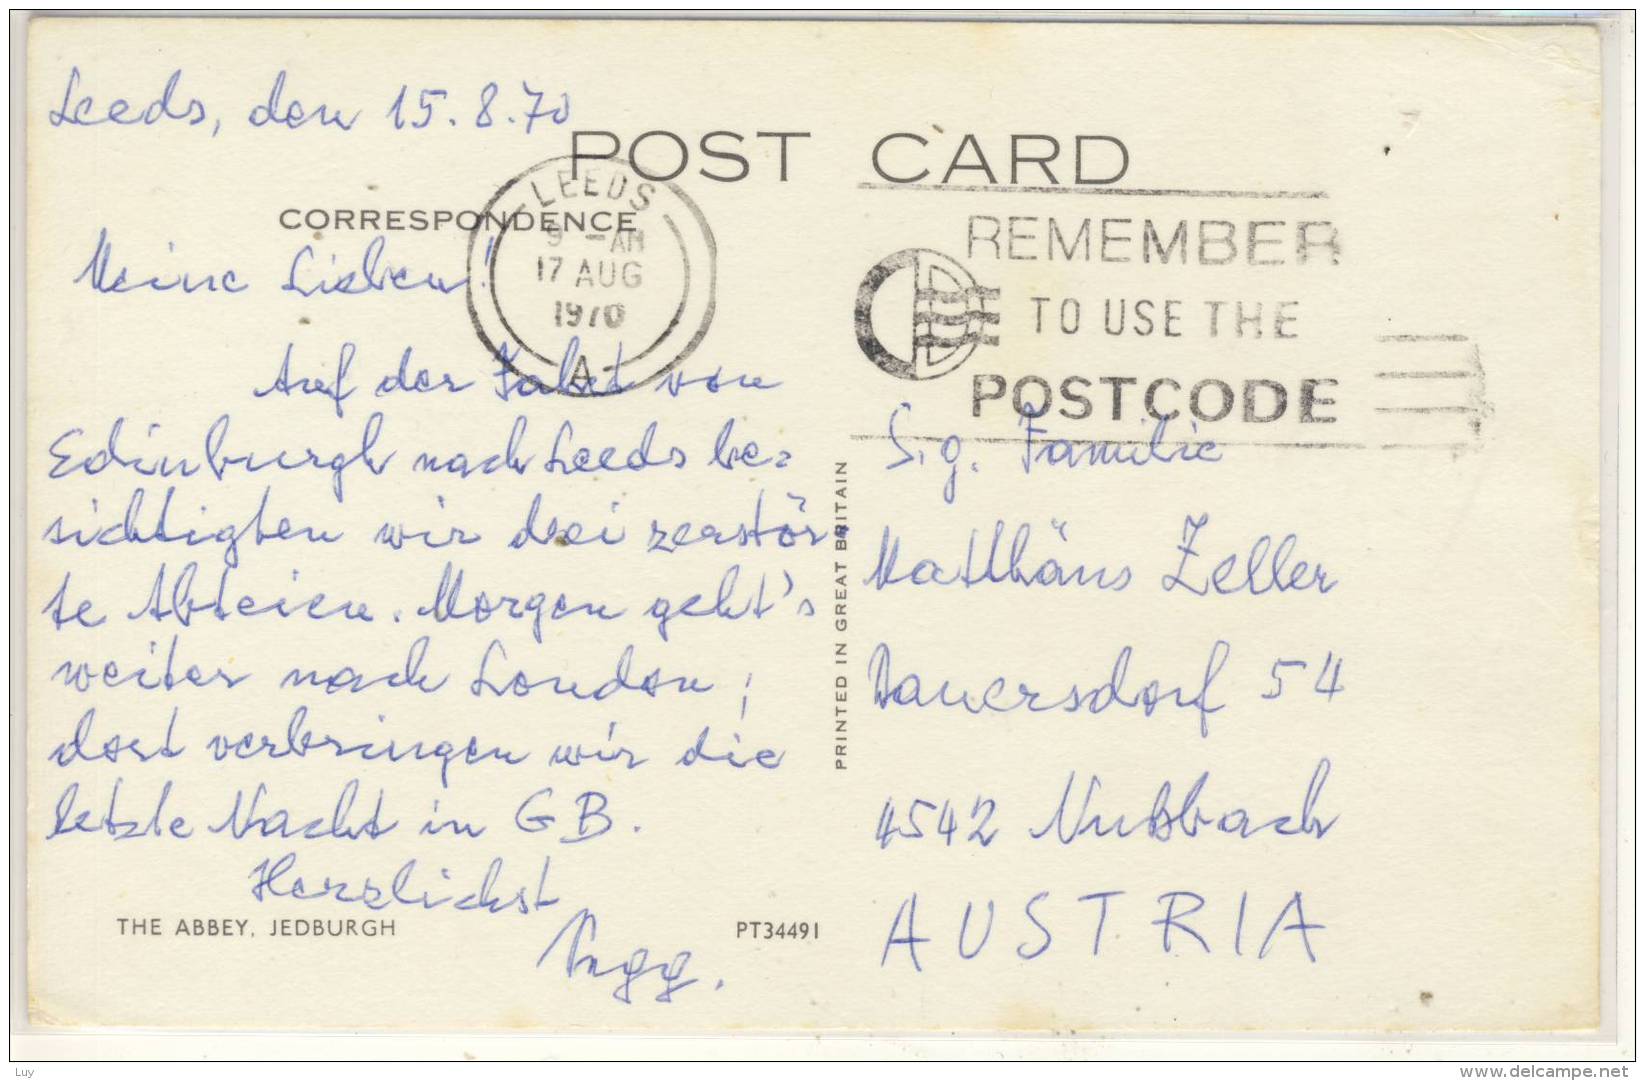 Leeds, den 15.8.70
POST CARD
CORRESPONDENCE
LEEDS
9 -AM
17 AUG
1970
A
REMEMBER
TO USE THE
POSTCODE
Meine Lieben!
Auf der Fahrt von
Edinburgh nach Leeds be=
sichtigten wir drei zerstör-
te Abteien. Morgen geht's
weiter nach London;
dort verbringen wir die
letzte Nacht in GB.
Herzlichst
THE ABBEY, JEDBURGH
PT34491
PRINTED IN GREAT BRITAIN
S.g. Familie
Matthäus Zeller
Dauersdorf 54
4542 Nußbach
AUSTRIA
Luy
www.delcampe.net